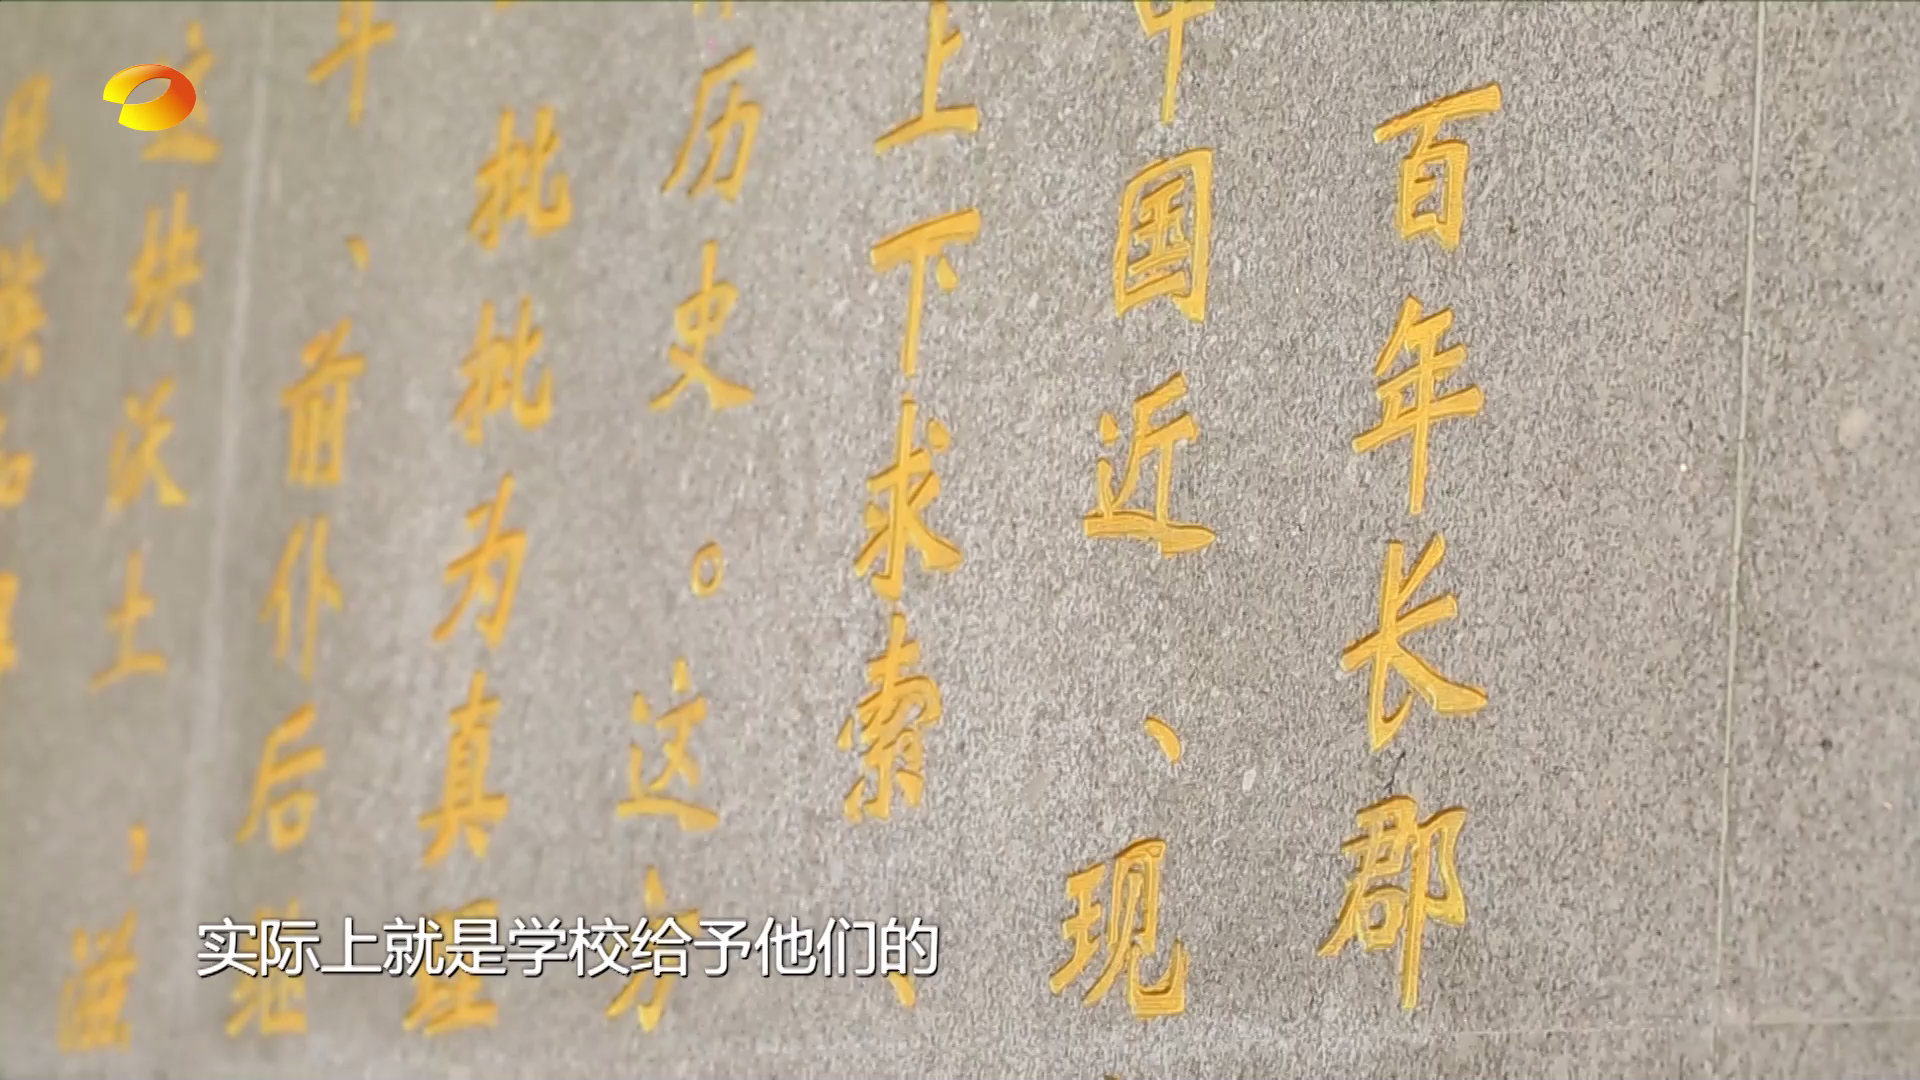 百年长郡
中国近、现
上下求索、
历史。这方
批批为真理
年、前仆后继
这块沃土，滋
民族
实际上就是学校给予他们的